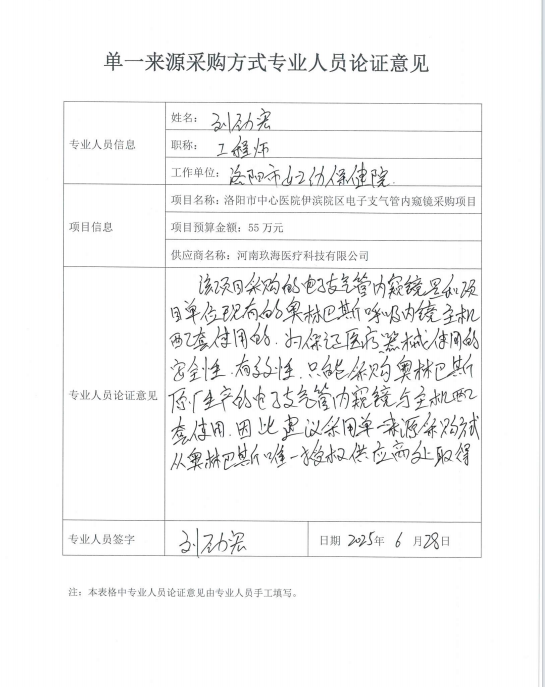 单一来源采购方式专业人员论证意见
专业人员信息
姓名：刘劲宏
职称：工程师
工作单位：洛阳市妇幼保健院.
项目信息
项目名称：洛阳市中心医院伊滨院区电子支气管内窥镜采购项目
项目预算金额：55 万元
供应商名称：河南玖海医疗科技有限公司
专业人员论证意见
该项目采购的电子支气管内窥镜是和项
目单位现有的奥林巴斯呼吸内镜主机
配套使用的.为保证医疗器械使用的
安全性.有效性.只能采购奥林巴斯
原厂生产的电子支气管内窥镜与主机配
套使用.因此建议采用单一来源采购方式
从奥林巴斯唯一授权供应商处取得
专业人员签字
刘劲宏
日期 2025年 6 月28日
注：本表格中专业人员论证意见由专业人员手工填写。